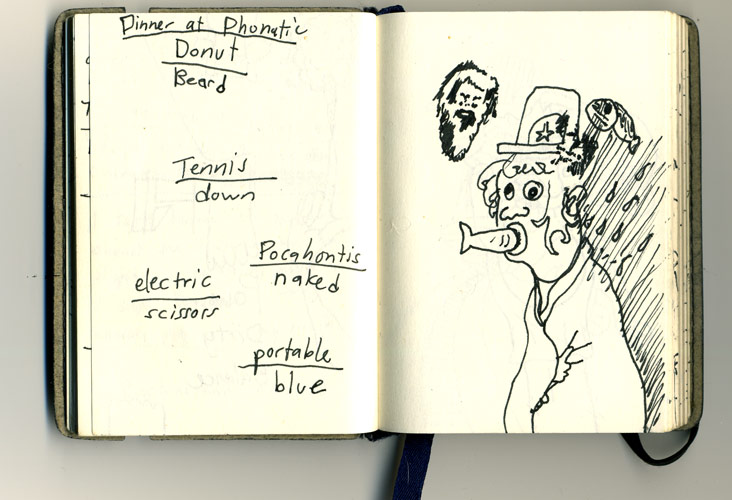 Dinner at Phonatic
Donut
Beard
Tennis
down
Pocahontis
naked
electric
scissors
portable
blue